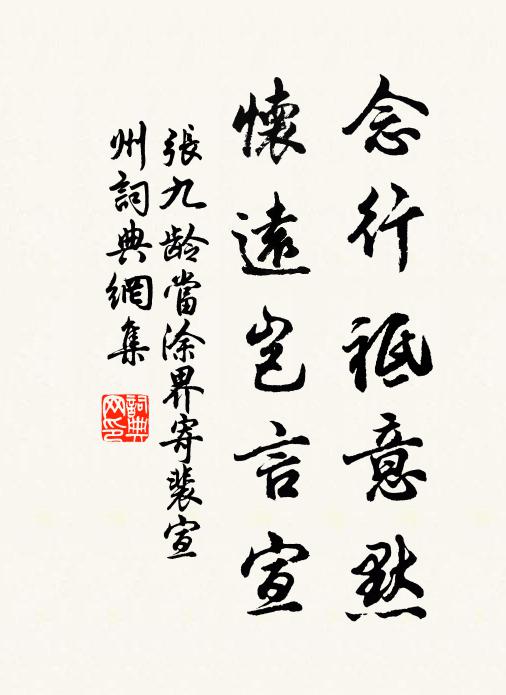 念行祗意默
懷遠豈言宣
張九龄當涂界寄裴宣
州詞典網集
詞典网印